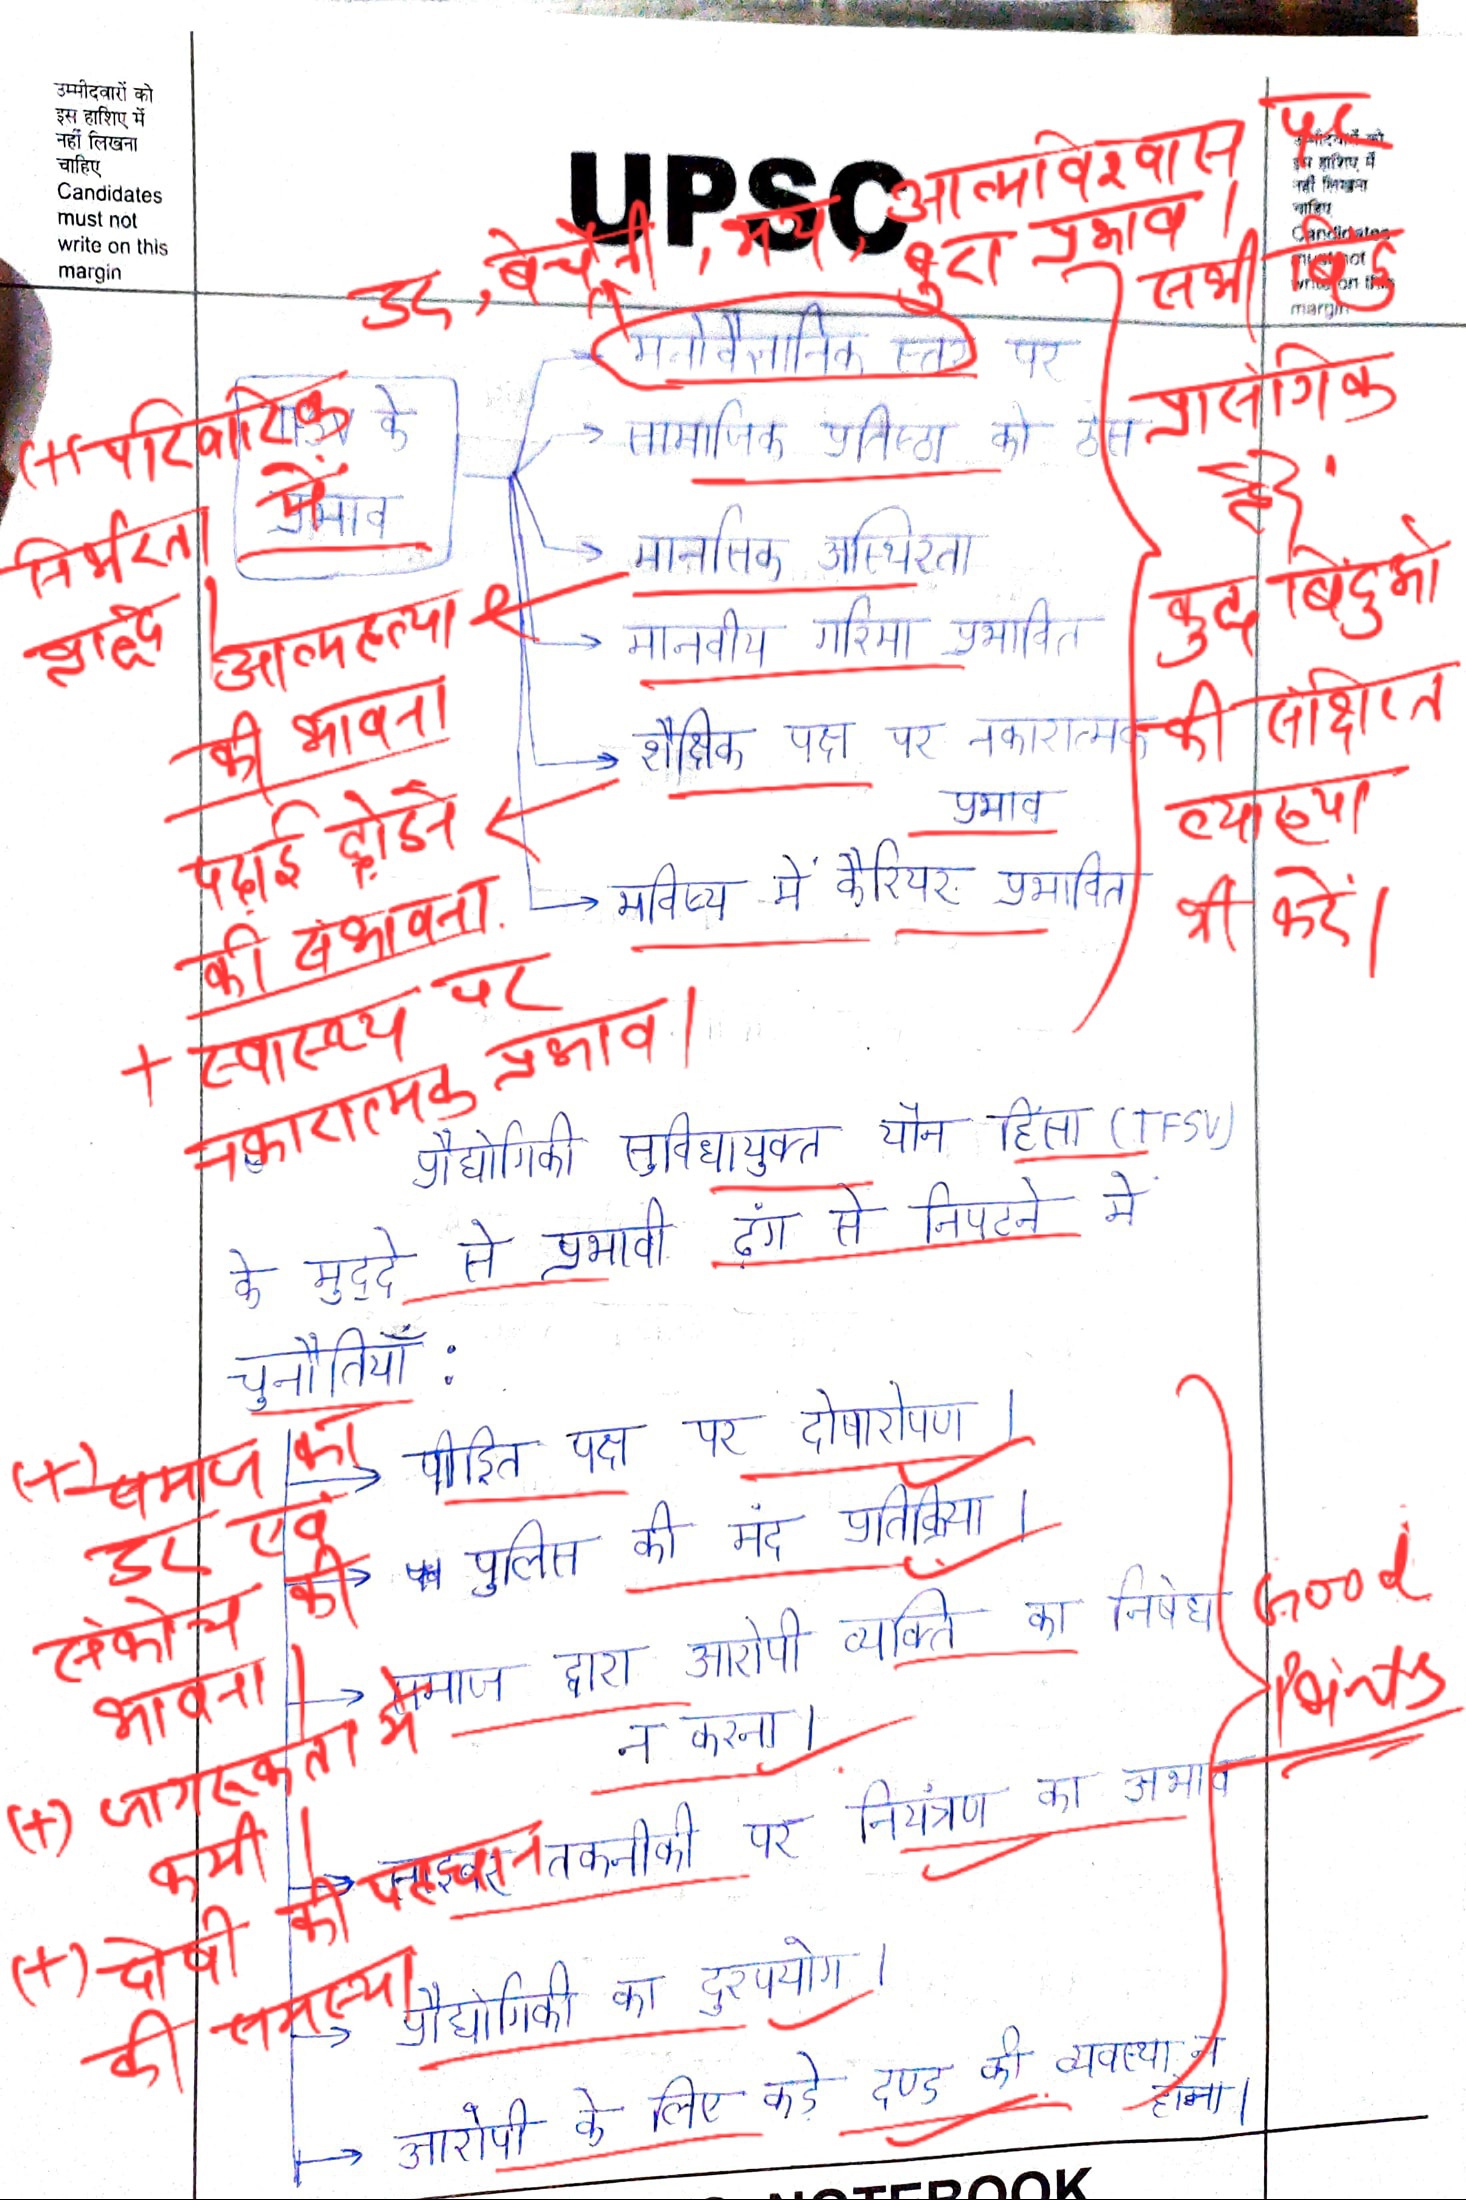 उम्मीदवारों को
इस हाशिए में
नहीं लिखना
चाहिए
Candidates
must not
write on this
margin
UPSC
उम्मीदवारों को
इस हाशिए में
नहीं लिखना
चाहिए
Candidates
must not
write on this
margin
डर, बेचैनी, भय, आत्मविश्वास पर
बुरा प्रभाव।
के
प्रभाव
मनोवैज्ञानिक स्तर पर
सामाजिक प्रतिष्ठा को ठेस
मानसिक अस्थिरता
मानवीय गरिमा प्रभावित
शैक्षिक पक्ष पर नकारात्मक
प्रभाव
भविष्य में कैरियर प्रभावित
(+) पारिवारिक
निर्भरता में
वृद्धि।
आत्महत्या
की भावना
पढ़ाई छोड़ने
की संभावना.
+ स्वास्थ्य पर
नकारात्मक प्रभाव।
सभी बिंदु
प्रासंगिक
हैं।
कुछ बिंदुओं
की संक्षिप्त
व्याख्या
भी करें।
प्रौद्योगिकी सुविधायुक्त यौन हिंसा (TFSV)
के मुद्दे से प्रभावी ढंग से निपटने में
चुनौतियाँ :
पीड़ित पक्ष पर दोषारोपण।
पुलिस की मंद प्रतिक्रिया।
समाज द्वारा आरोपी व्यक्ति का निषेध
न करना।
साइबर तकनीकी पर नियंत्रण का अभाव
प्रौद्योगिकी का दुरपयोग।
आरोपी के लिए कड़े दण्ड की व्यवस्था न
होना।
(+) समाज का
डर एवं
संकोच की
भावना।
(+) जागरूकता में
कमी।
(+) दोषी की पहचान
की समस्या
Good
Points
NOTEBOOK